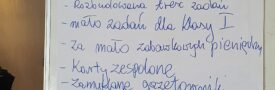 - Rozbudowana treść zadań
- mało zadań dla klasy I
- za mało zabawkowych pieniędzy
- Karty zespolone
- Zamykane